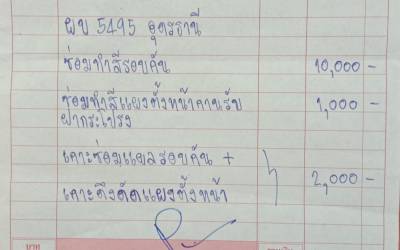 ผบ 5495 อุดรธานี
ซ่อมทำสีรอบคัน 10,000 -
ซ่อมทำสีแผงตั้งหน้าคานรับ 1,000 -
ฝากระโปรง
เคาะซ่อมแผลรอบคัน +
เคาะดึงดัดแผงตั้งหน้า 2,000 -
บาท